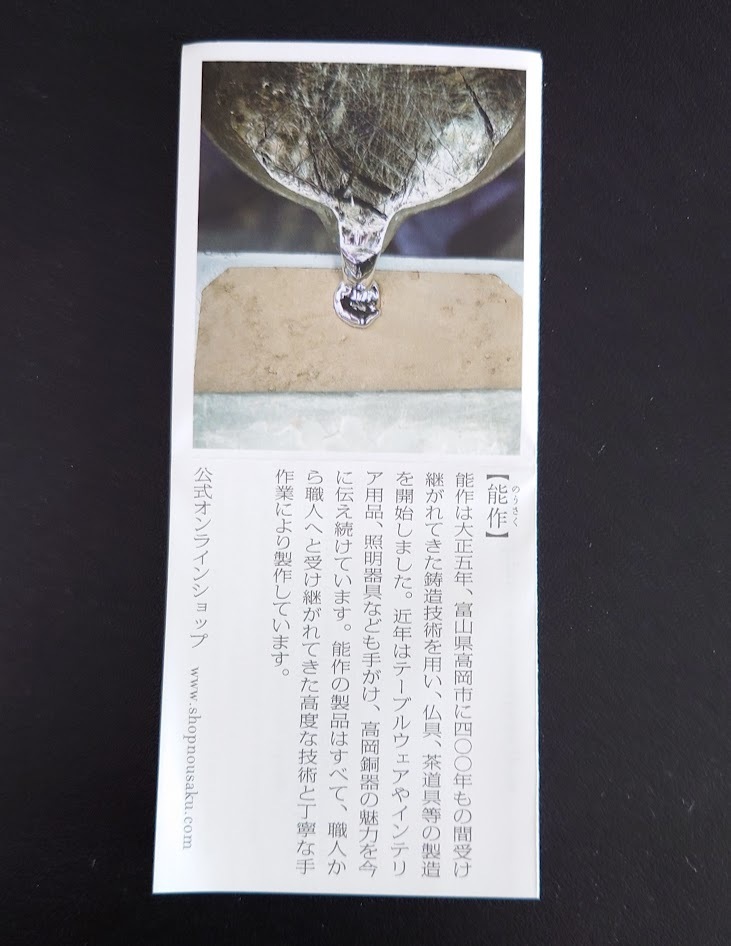 【能作】
のうさく
能作は大正五年、富山県高岡市に四〇〇年もの間受け
継がれてきた鋳造技術を用い、仏具、茶道具等の製造
を開始しました。近年はテーブルウェアやインテリ
ア用品、照明器具なども手がけ、高岡銅器の魅力を今
に伝え続けています。能作の製品はすべて、職人か
ら職人へと受け継がれてきた高度な技術と丁寧な手
作業により製作しています。
公式オンラインショップ www.shopnousaku.com